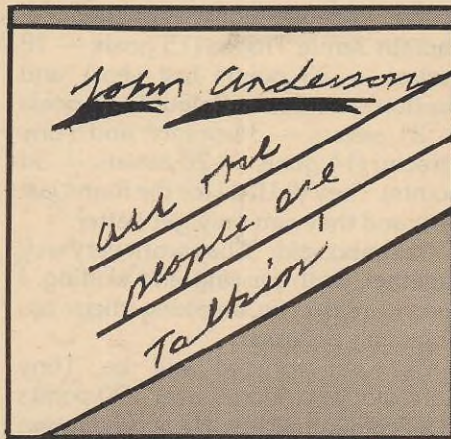 John Anderson
all the
people are
Talkin'